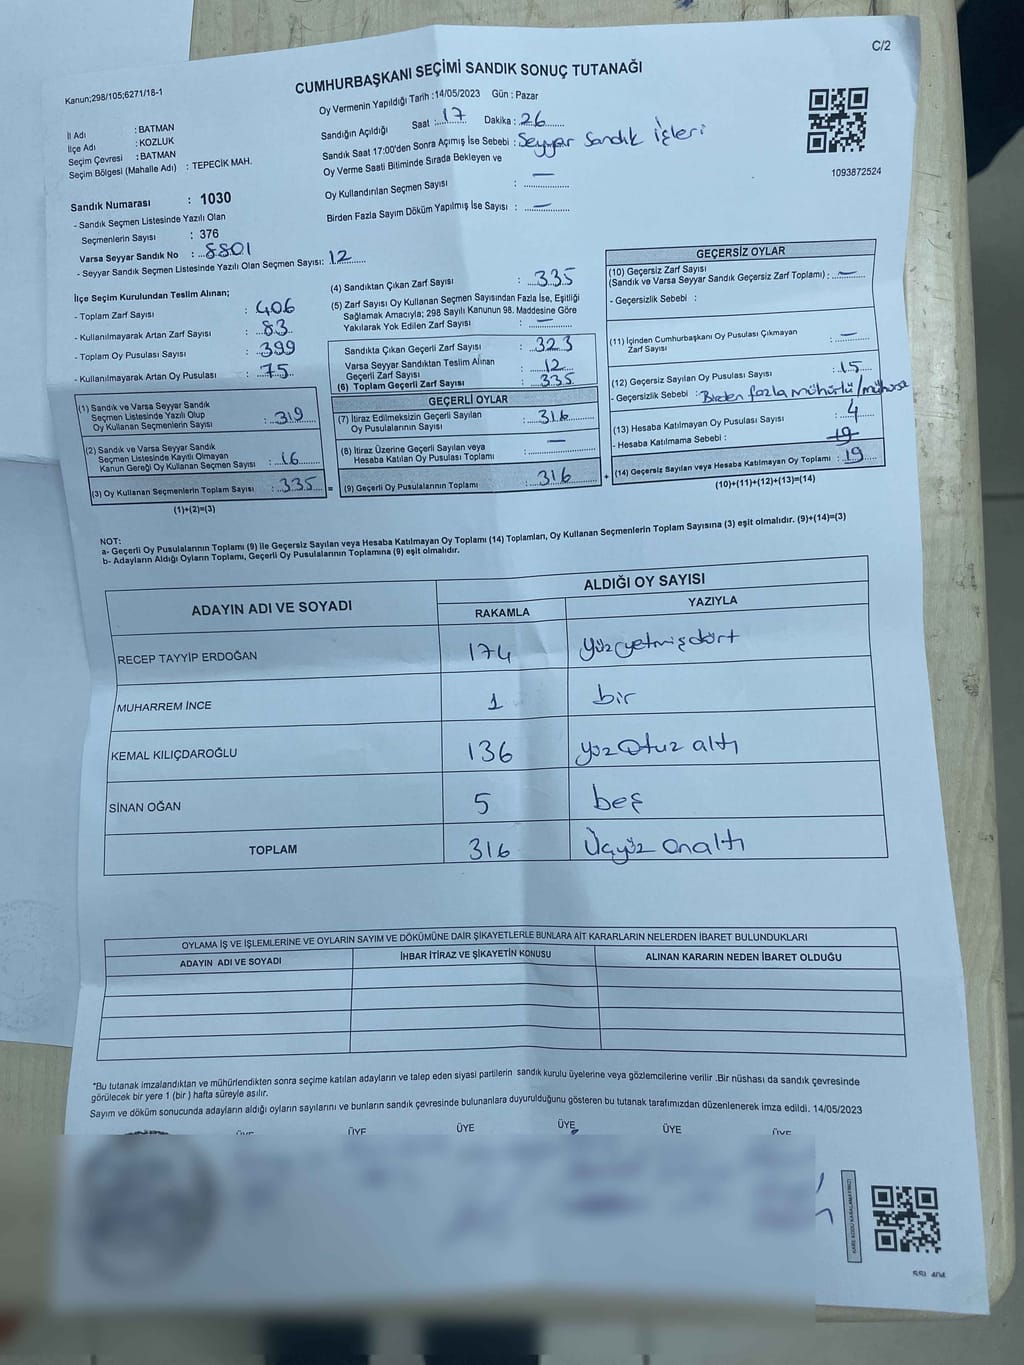 C/2
CUMHURBAŞKANI SEÇİMİ SANDIK SONUÇ TUTANAĞI
Kanun;298/105;6271/18-1
Oy Vermenin Yapıldığı Tarih :14/05/2023 Gün : Pazar
İl Adı : BATMAN
İlçe Adı : KOZLUK
Seçim Çevresi : BATMAN
Seçim Bölgesi (Mahalle Adı) : TEPECİK MAH.
Sandığın Açıldığı Saat : 17 Dakika : 26
Sandık Saat 17:00'den Sonra Açımış İse Sebebi : Seyyar Sandık İşleri
Oy Verme Saati Bitiminde Sırada Bekleyen ve
Oy Kullandırılan Seçmen Sayısı : —
Birden Fazla Sayım Döküm Yapılmış İse Sayısı : —
1093872524
Sandık Numarası : 1030
- Sandık Seçmen Listesinde Yazılı Olan
Seçmenlerin Sayısı : 376
Varsa Seyyar Sandık No : 8801
- Seyyar Sandık Seçmen Listesinde Yazılı Olan Seçmen Sayısı: 12
İlçe Seçim Kurulundan Teslim Alınan;
- Toplam Zarf Sayısı : 406
- Kullanılmayarak Artan Zarf Sayısı : 83
- Toplam Oy Pusulası Sayısı : 399
- Kullanılmayarak Artan Oy Pusulası : 75
(1) Sandık ve Varsa Seyyar Sandık
Seçmen Listesinde Yazılı Olup
Oy Kullanan Seçmenlerin Sayısı : 319
(2) Sandık ve Varsa Seyyar Sandık
Seçmen Listesinde Kayıtlı Olmayan
Kanun Gereği Oy Kullanan Seçmen Sayısı : 16
(3) Oy Kullanan Seçmenlerin Toplam Sayısı : 335 =
(1)+(2)=(3)
(4) Sandıktan Çıkan Zarf Sayısı : 335
(5) Zarf Sayısı Oy Kullanan Seçmen Sayısından Fazla İse, Eşitliği
Sağlamak Amacıyla; 298 Sayılı Kanunun 98. Maddesine Göre
Yakılarak Yok Edilen Zarf Sayısı : —
Sandıkta Çıkan Geçerli Zarf Sayısı : 323
Varsa Seyyar Sandıktan Teslim Alınan
Geçerli Zarf Sayısı : 12
(6) Toplam Geçerli Zarf Sayısı : 335
GEÇERLİ OYLAR
(7) İtiraz Edilmeksizin Geçerli Sayılan
Oy Pusulalarının Sayısı : 316
(8) İtiraz Üzerine Geçerli Sayılan veya
Hesaba Katılan Oy Pusulası Toplamı : —
(9) Geçerli Oy Pusulalarının Toplamı : 316 +
GEÇERSİZ OYLAR
(10) Geçersiz Zarf Sayısı
(Sandık ve Varsa Seyyar Sandık Geçersiz Zarf Toplamı) : —
- Geçersizlik Sebebi :
(11) İçinden Cumhurbaşkanı Oy Pusulası Çıkmayan
Zarf Sayısı : —
(12) Geçersiz Sayılan Oy Pusulası Sayısı : 15
- Geçersizlik Sebebi : Birden fazla mühürlü/mühürsz
(13) Hesaba Katılmayan Oy Pusulası Sayısı : 4
- Hesaba Katılmama Sebebi : 19
(14) Geçersiz Sayılan veya Hesaba Katılmayan Oy Toplamı : 19
(10)+(11)+(12)+(13)=(14)
NOT:
a- Geçerli Oy Pusulalarının Toplamı (9) ile Geçersiz Sayılan veya Hesaba Katılmayan Oy Toplamı (14) Toplamları, Oy Kullanan Seçmenlerin Toplam Sayısına (3) eşit olmalıdır. (9)+(14)=(3)
b- Adayların Aldığı Oyların Toplamı, Geçerli Oy Pusulalarının Toplamına (9) eşit olmalıdır.
ADAYIN ADI VE SOYADI ALDIĞI OY SAYISI
RAKAMLA YAZIYLA
RECEP TAYYİP ERDOĞAN 174 yüzyetmişdört
MUHARREM İNCE 1 bir
KEMAL KILIÇDAROĞLU 136 yüz Otuz altı
SİNAN OĞAN 5 beş
TOPLAM 316 Üçyüz onaltı
OYLAMA İŞ VE İŞLEMLERİNE VE OYLARIN SAYIM VE DÖKÜMÜNE DAİR ŞİKAYETLERLE BUNLARA AİT KARARLARIN NELERDEN İBARET BULUNDUKLARI
ADAYIN ADI VE SOYADI İHBAR İTİRAZ VE ŞİKAYETİN KONUSU ALINAN KARARIN NEDEN İBARET OLDUĞU
*Bu tutanak imzalandıktan ve mühürlendikten sonra seçime katılan adayların ve talep eden siyasi partilerin sandık kurulu üyelerine veya gözlemcilerine verilir .Bir nüshası da sandık çevresinde
görülecek bir yere 1 (bir ) hafta süreyle asılır.
Sayım ve döküm sonucunda adayların aldığı oyların sayılarını ve bunların sandık çevresinde bulunanlara duyurulduğunu gösteren bu tutanak tarafımızdan düzenlenerek imza edildi. 14/05/2023
ÜYE ÜYE ÜYE ÜYE ÜYE ÜYE
KARE KODU KARALAMAYINIZ!